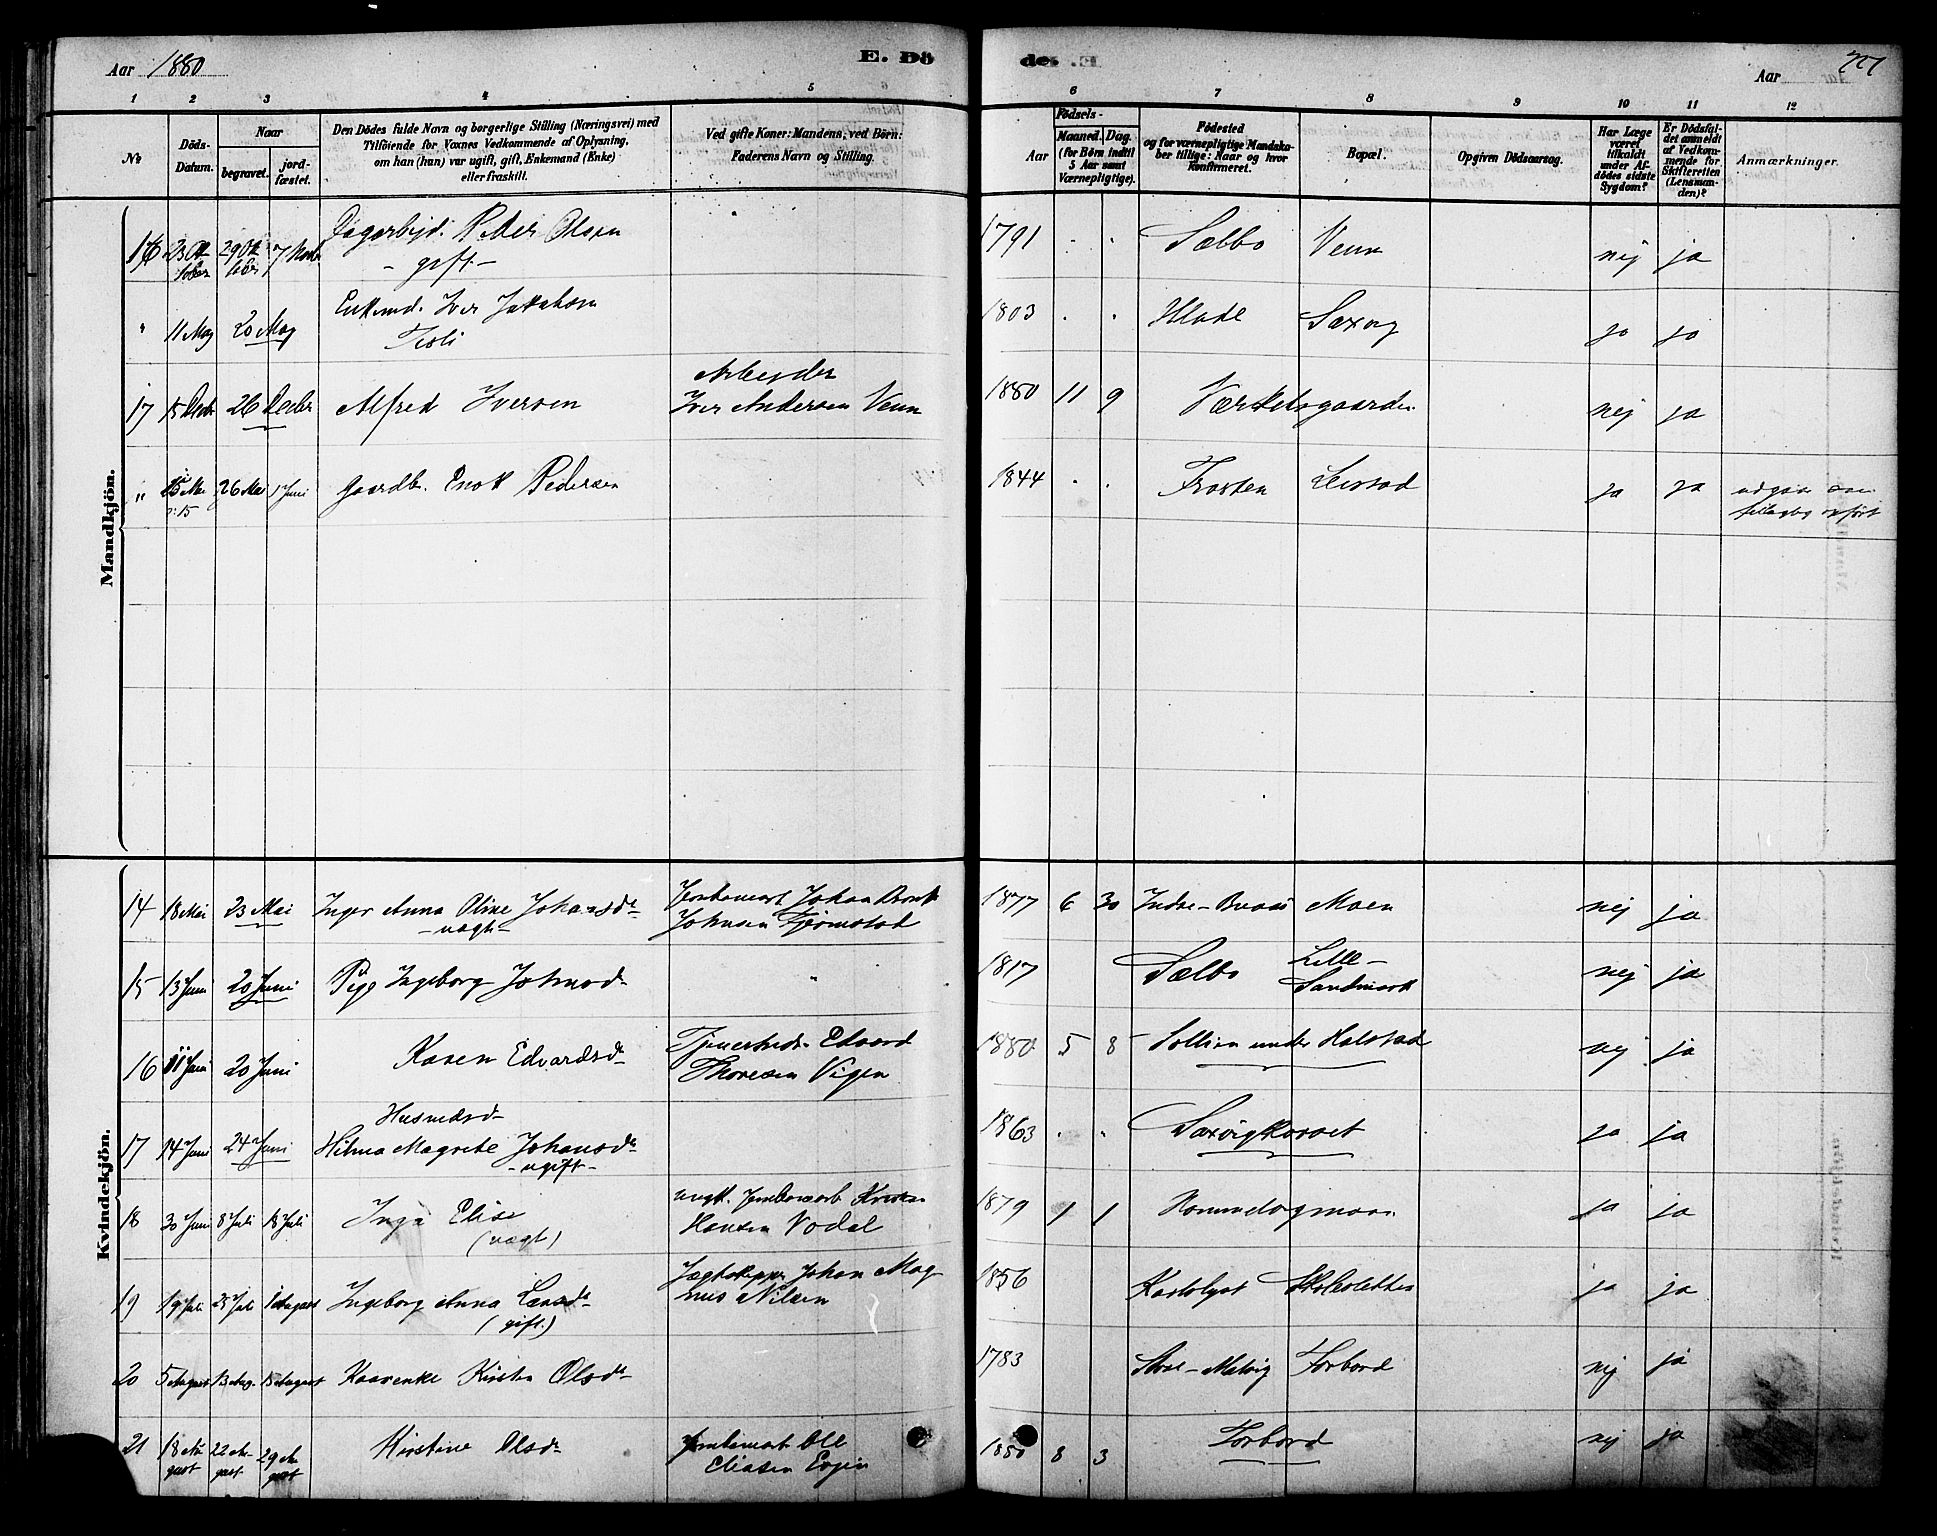 Aar 1880
E. Dö
de: E
Aar
1 2 3 4 5
6 7 8 9 10 11 12
No
Döds-
Datum.
Naar
begravet.
jord-
fæstet.
Den Dödes fulde Navn og borgerlige Stilling (Næringsvei) med
Tilföiende for Voxnes Vedkommende af Oplysning,
om han (hun) var ugift, gift, Enkemand (Enke)
eller fraskilt.
Ved gifte Koner: Mandens, ved Börn:
Faderens Navn og Stilling.
Födsels-
Aar
Maaned. Dag.
(for Börn indtil
5 Aar samt
Værnepligtige).
Födested
og for værnepligtige Mandska-
ber tillige: Naar og hvor
Konfirmeret.
Bopæl.
Opgiven Dödsaarsag.
Har Læge
været
tilkaldt
under Af-
dödes sidste
Sygdom?
Er Dödsfal-
det anmeldt
af Vedkom-
mende for
Skifteretten
(Lensman-
den)?
Anmærkninger.
Mandkjön.
16 23 Ok
tober 29 Ok
tober 7 Novb Dagarbejd. Peder Olsen
- gift -
1791 " " Sælbo Venn nej ja
" 11 Maj 20 Maj Enkemd. Iver Jakobsen
1803 " " Hlade Saxvig ja ja
17 15 Decbr 26 Decbr Alfred Iversen Arbejder
Iver Andersen Venn
1880 11 9 Værkelsgaarden nej ja
" 15 Mai 26 Mai 1 Juni Gaardb. Enok Pedersen
1844 " " Frosten Leistad ja ja udgaar som
Kvindekjön.
14 18 Mai 23 Mai Inger Anna Oline Johansdr
- uægt - Jernbanearb Johan
Johnsen Fjørmstad
1877 6 30 Indre- Moen nej ja
15 13 Juni 20 Juni Pige Ingeborg Johnsdr "
1817 Sælbo Lille-
Sandmark nej ja
16 11 Juni 20 Juni Karen Edvardsdr Tjenestedr. Edvard
Thoresen Vigen
1880 5 8 Sollien under Halstad nej ja
17 14 Juni 24 Juni Husmdsd-
Hilma Magrete Johansdr
- ugift -
1863 " " Saxvigkorset ja ja
18 30 Juni 8 Juli 18 Juli Inga Elise
(uægt) ungk. Jernbanearb Kristian
Hansen Vodal
1879 1 1 Hommelvigmoen ja ja
19 19 Juli 25 Juli 1 August Ingeborg Anna Larsdr
(gift.) Jægtskipper Johan Mag
nus Nilsen
1856 Karlslyst Skolesletten ja ja
20 5 August 13 Aug. 15 August Kaarenke Kirsten Olsdr
1783 Malvig Torbord nej ja
21 18 Au
gust 22 Au
gust 29 Au
gust Kirstine Olsdr Jernbanearb Ole
Eliasen
1880 8 3 Torbord nej ja